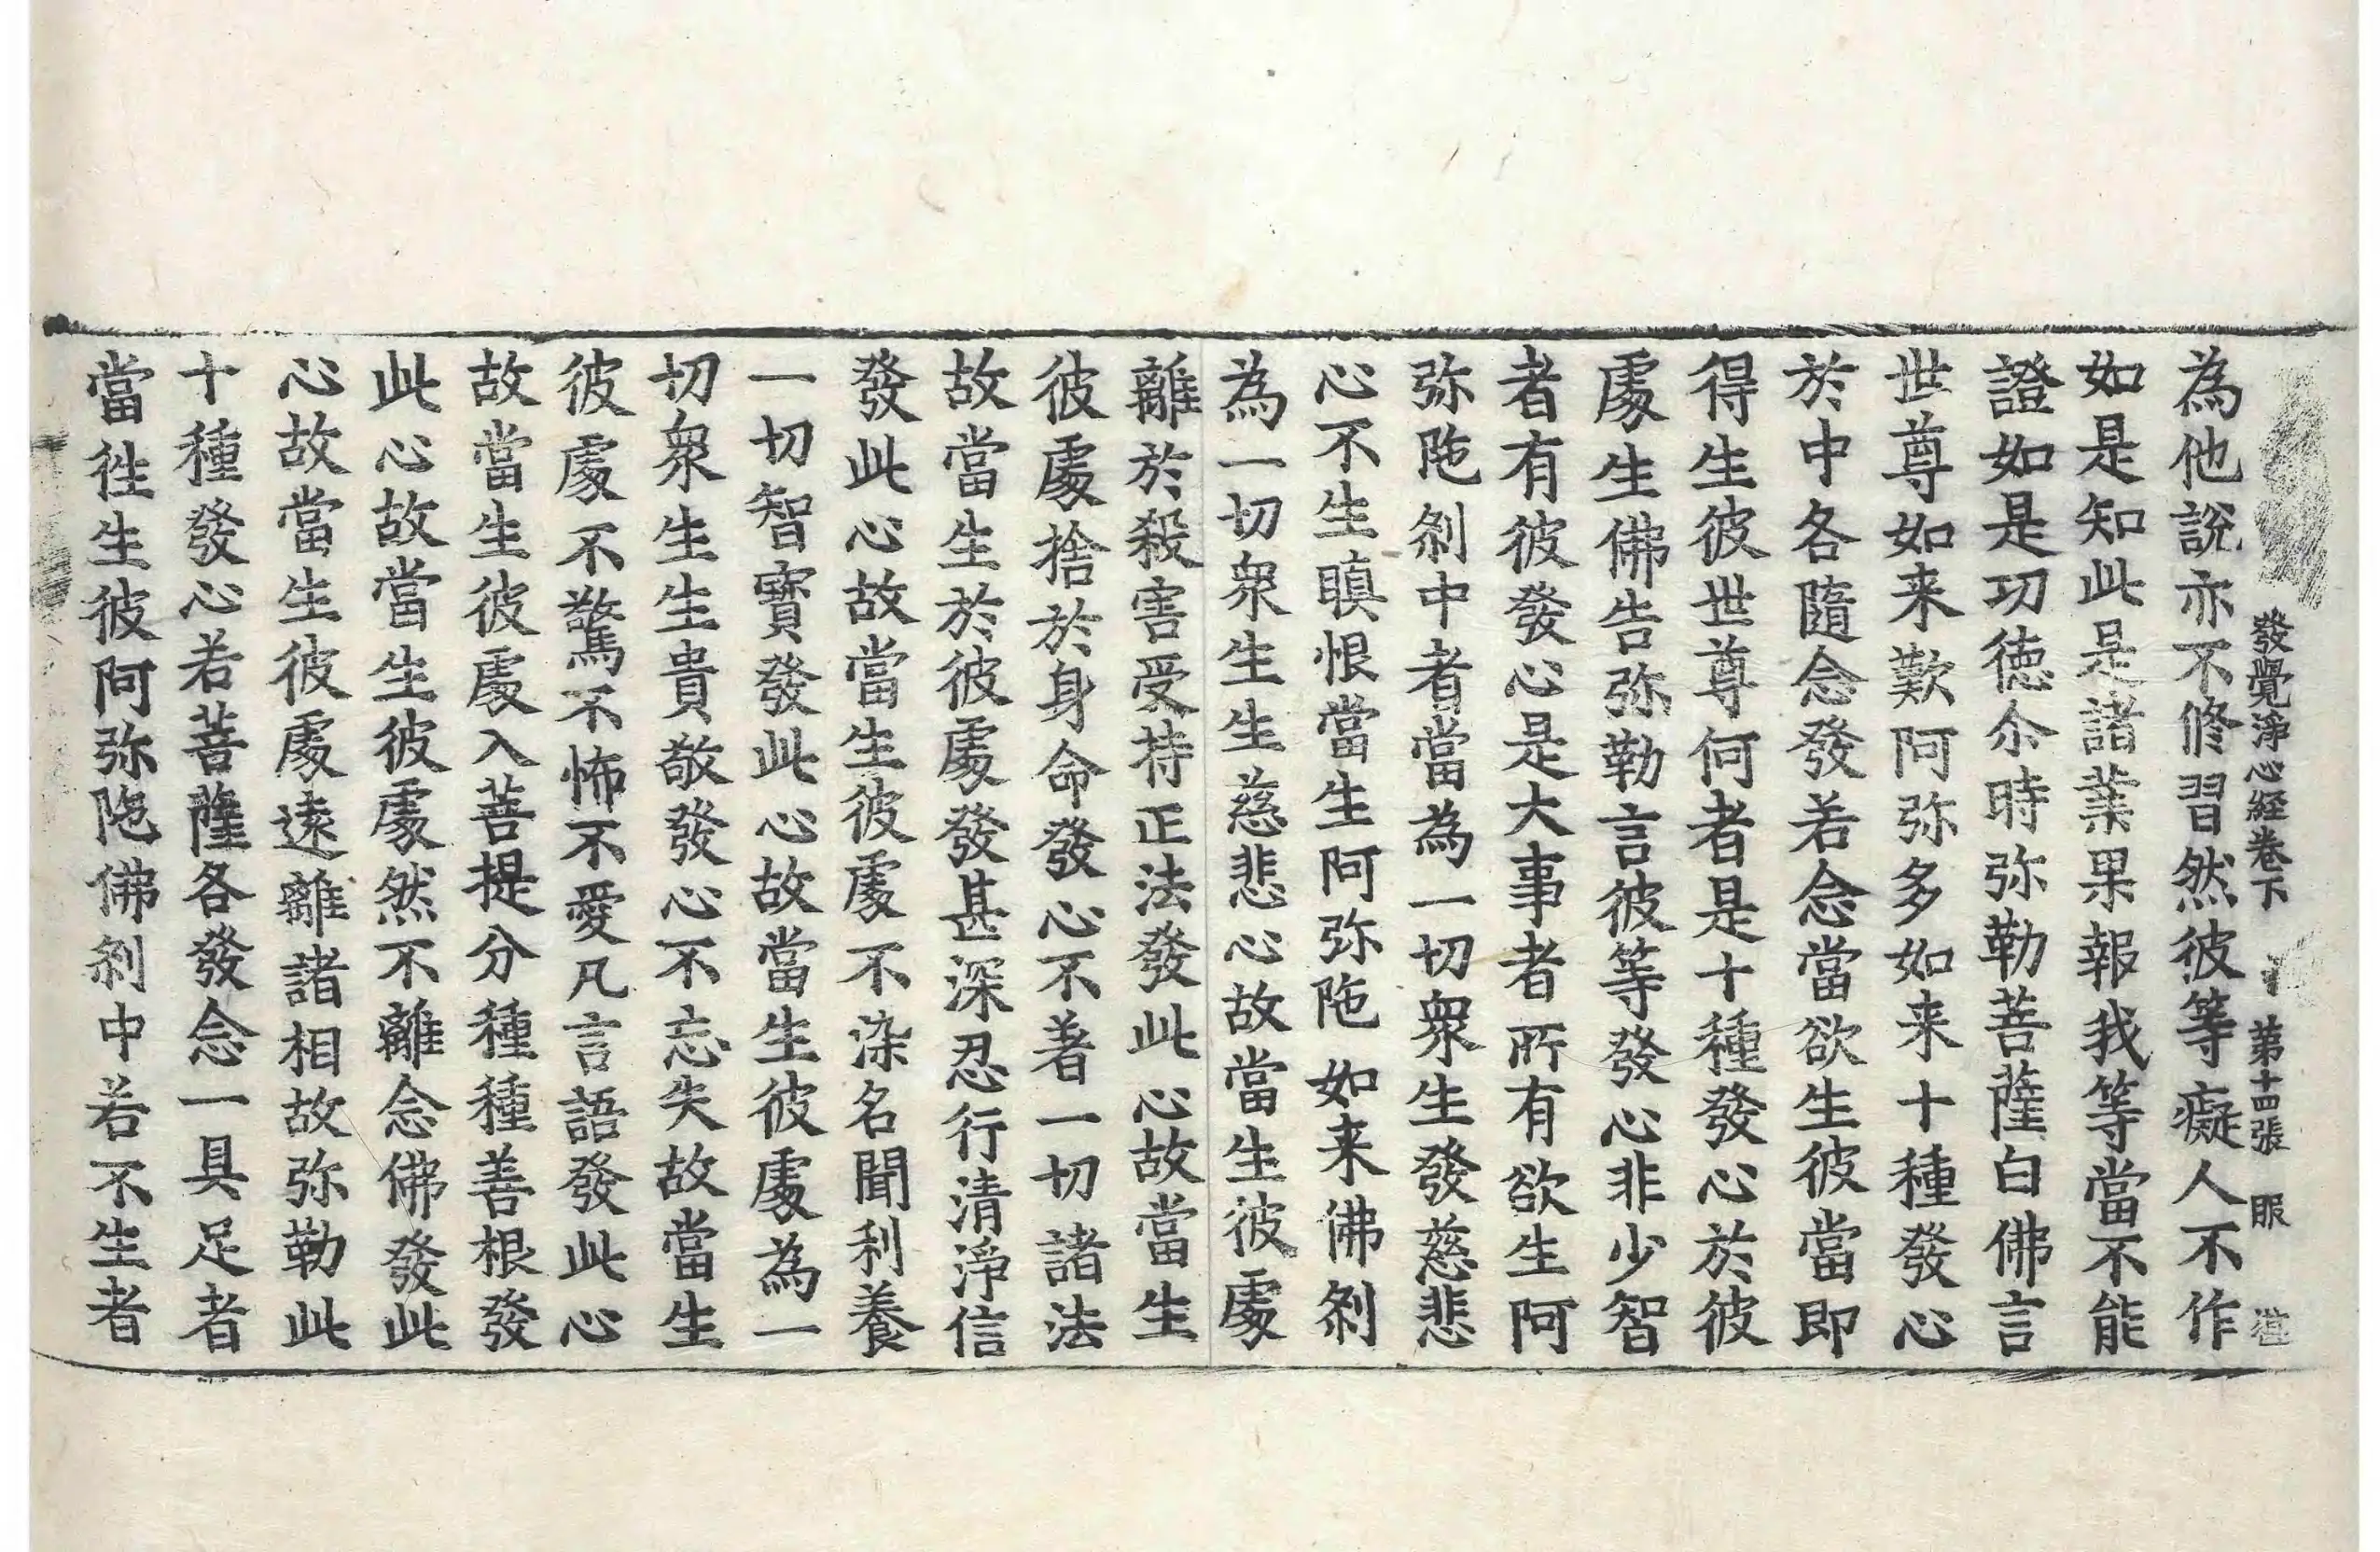 發覺淨心經卷下 第十四張 眼
為他說亦不修習然彼等癡人不作
如是知此是諸業果報我等當不能
證如是功德尒時弥勒菩薩白佛言
世尊如来歎阿弥多如来十種發心
於中各隨念發若念當欲生彼當即
得生彼世尊何者是十種發心於彼
處生佛告弥勒言彼等發心非少智
者有彼發心是大事者所有欲生阿
弥陁剎中者當為一切衆生發慈悲
心不生瞋恨當生阿弥陁如来佛剎
為一切衆生生慈悲心故當生彼處
離於殺害受持正法發此心故當生
彼處捨於身命發心不著一切諸法
故當生於彼處發甚深忍行清淨信
發此心故當生彼處不染名聞利養
一切智寶發此心故當生彼處為一
切衆生生貴敬發心不忘失故當生
彼處不驚不怖不愛凡言語發此心
故當生彼處入菩提分種種善根發
此心故當生彼處然不離念佛發此
心故當生彼處遠離諸相故弥勒此
十種發心若菩薩各發念一具足者
當往生彼阿弥陁佛剎中若不生者